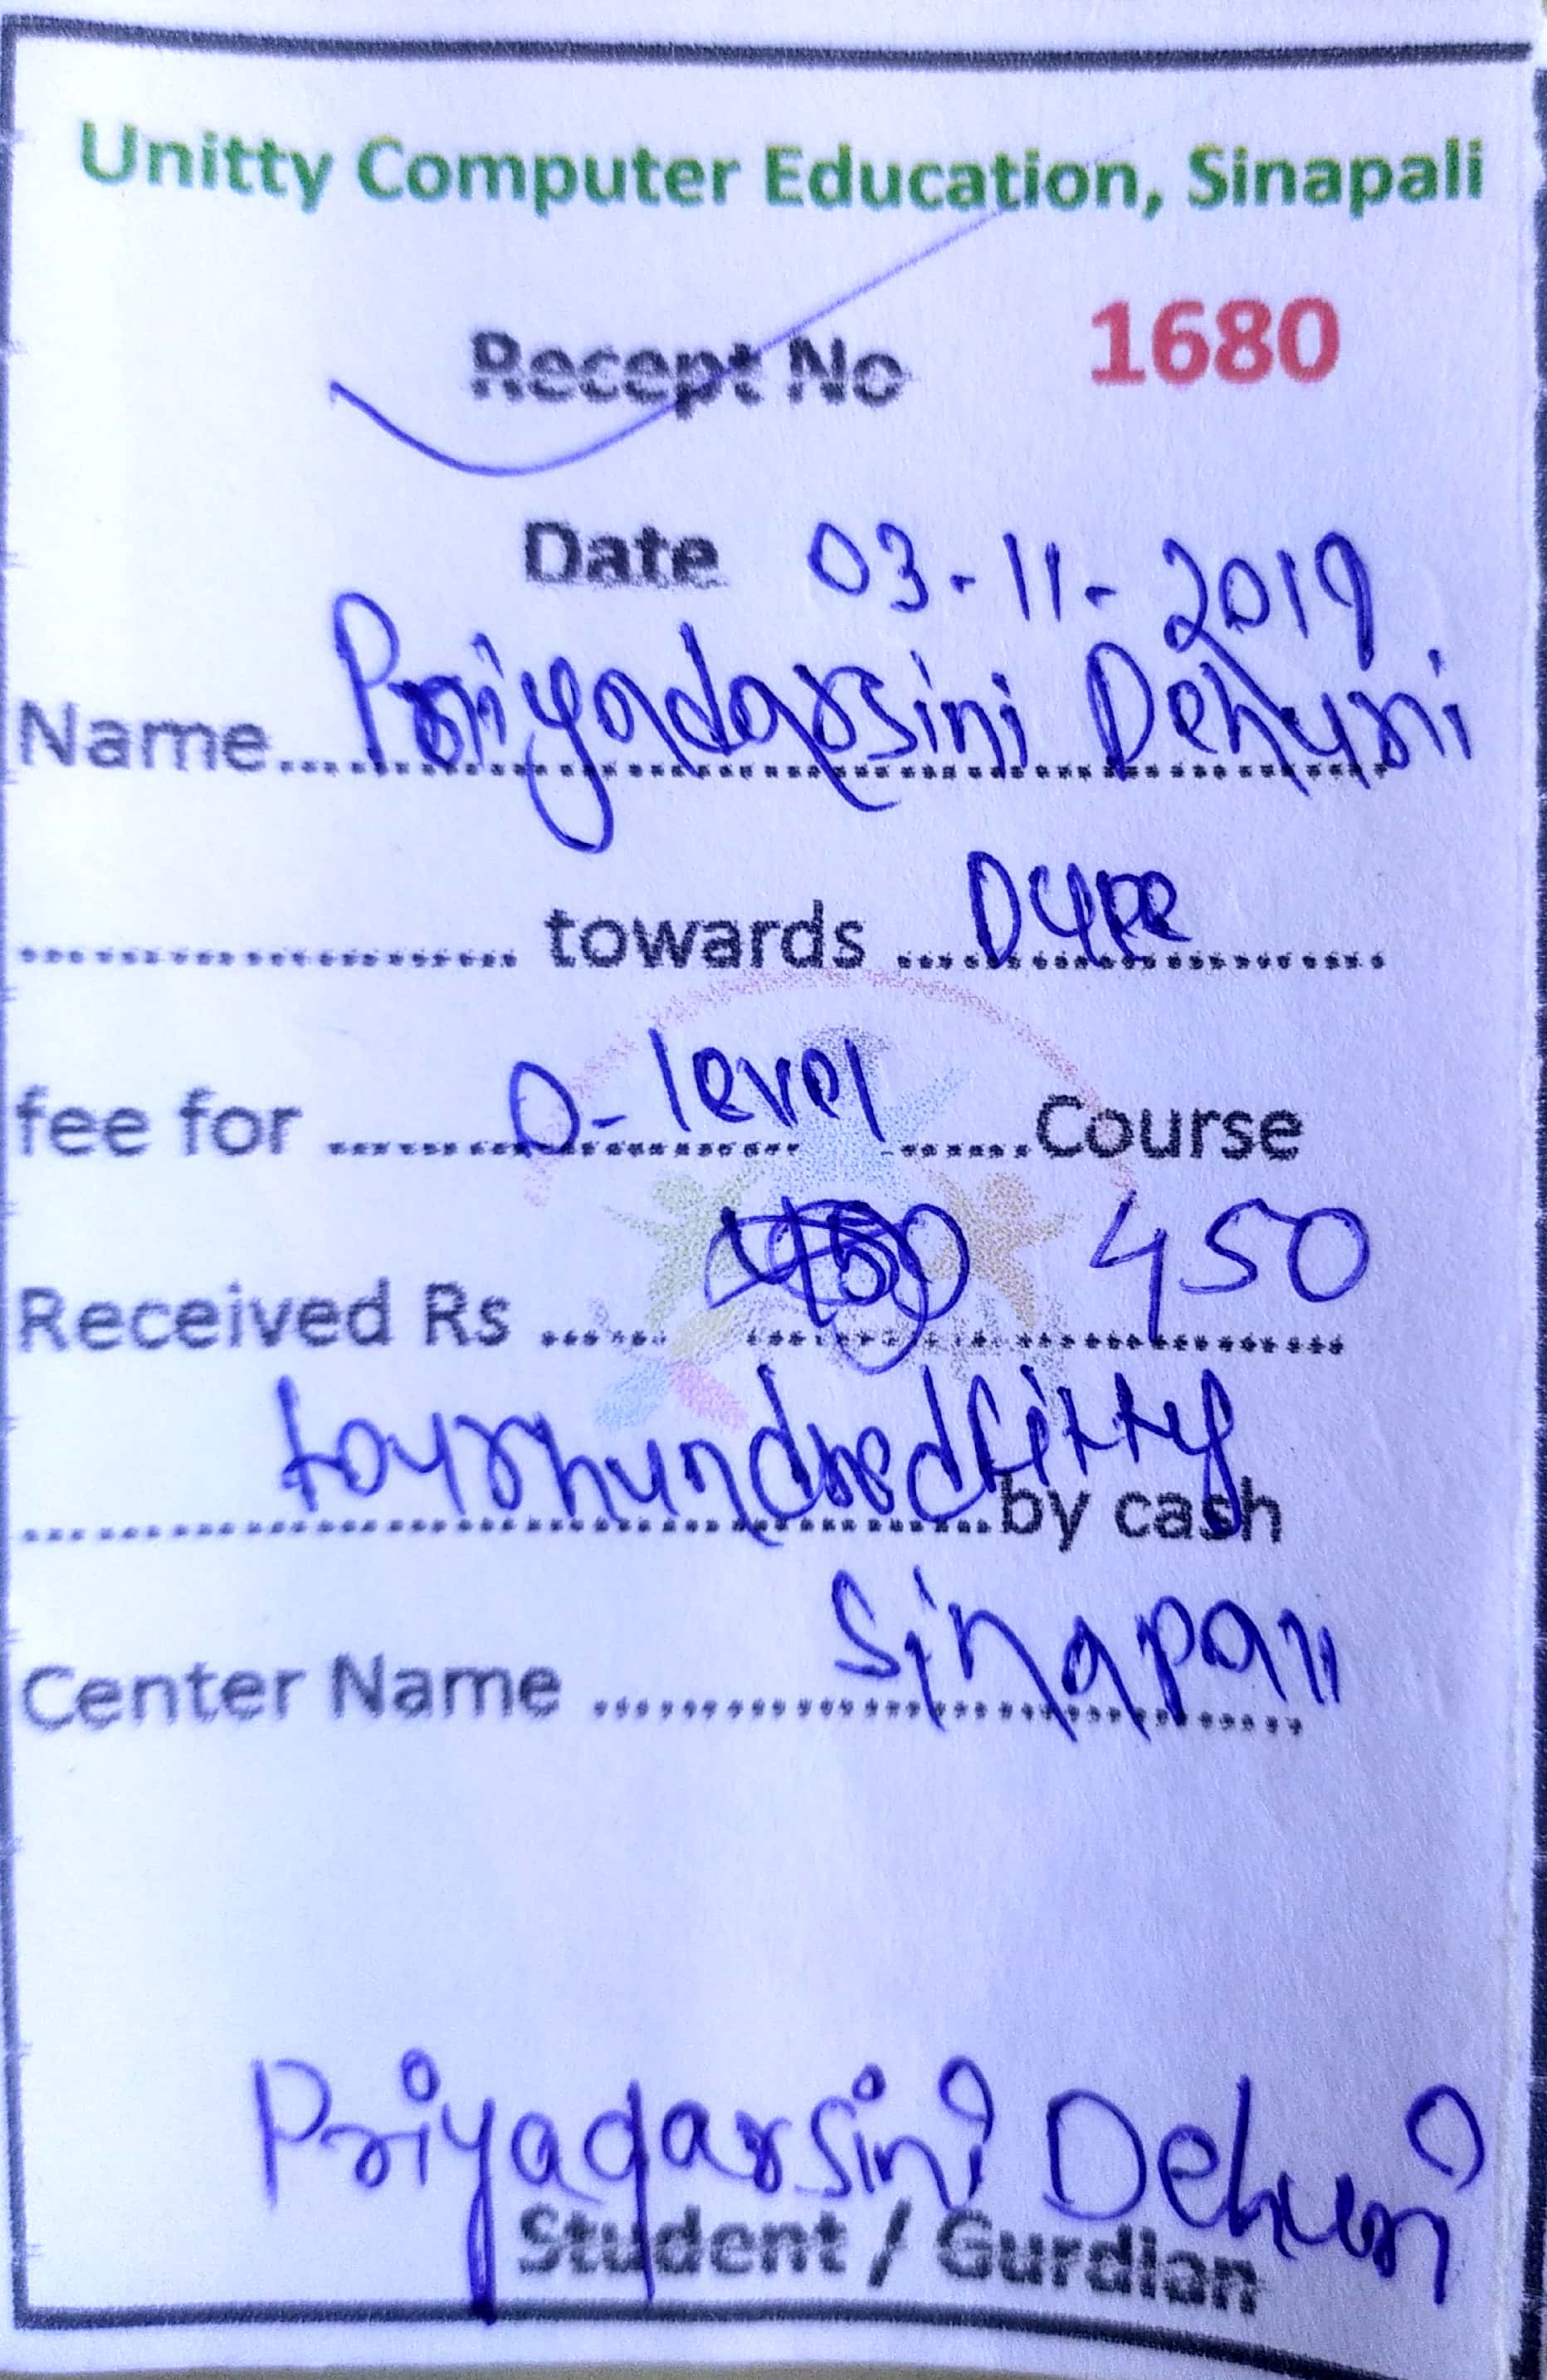 Unitty Computer Education, Sinapali
Recept No 1680
Date 03-11-2019
Name Priyadarsini Dehuri
towards
fee for O-level Course
Received Rs 450
fourhundredfitty by cash
Center Name Sinapali
Priyadarsini Dehuri
Student / Gurdian